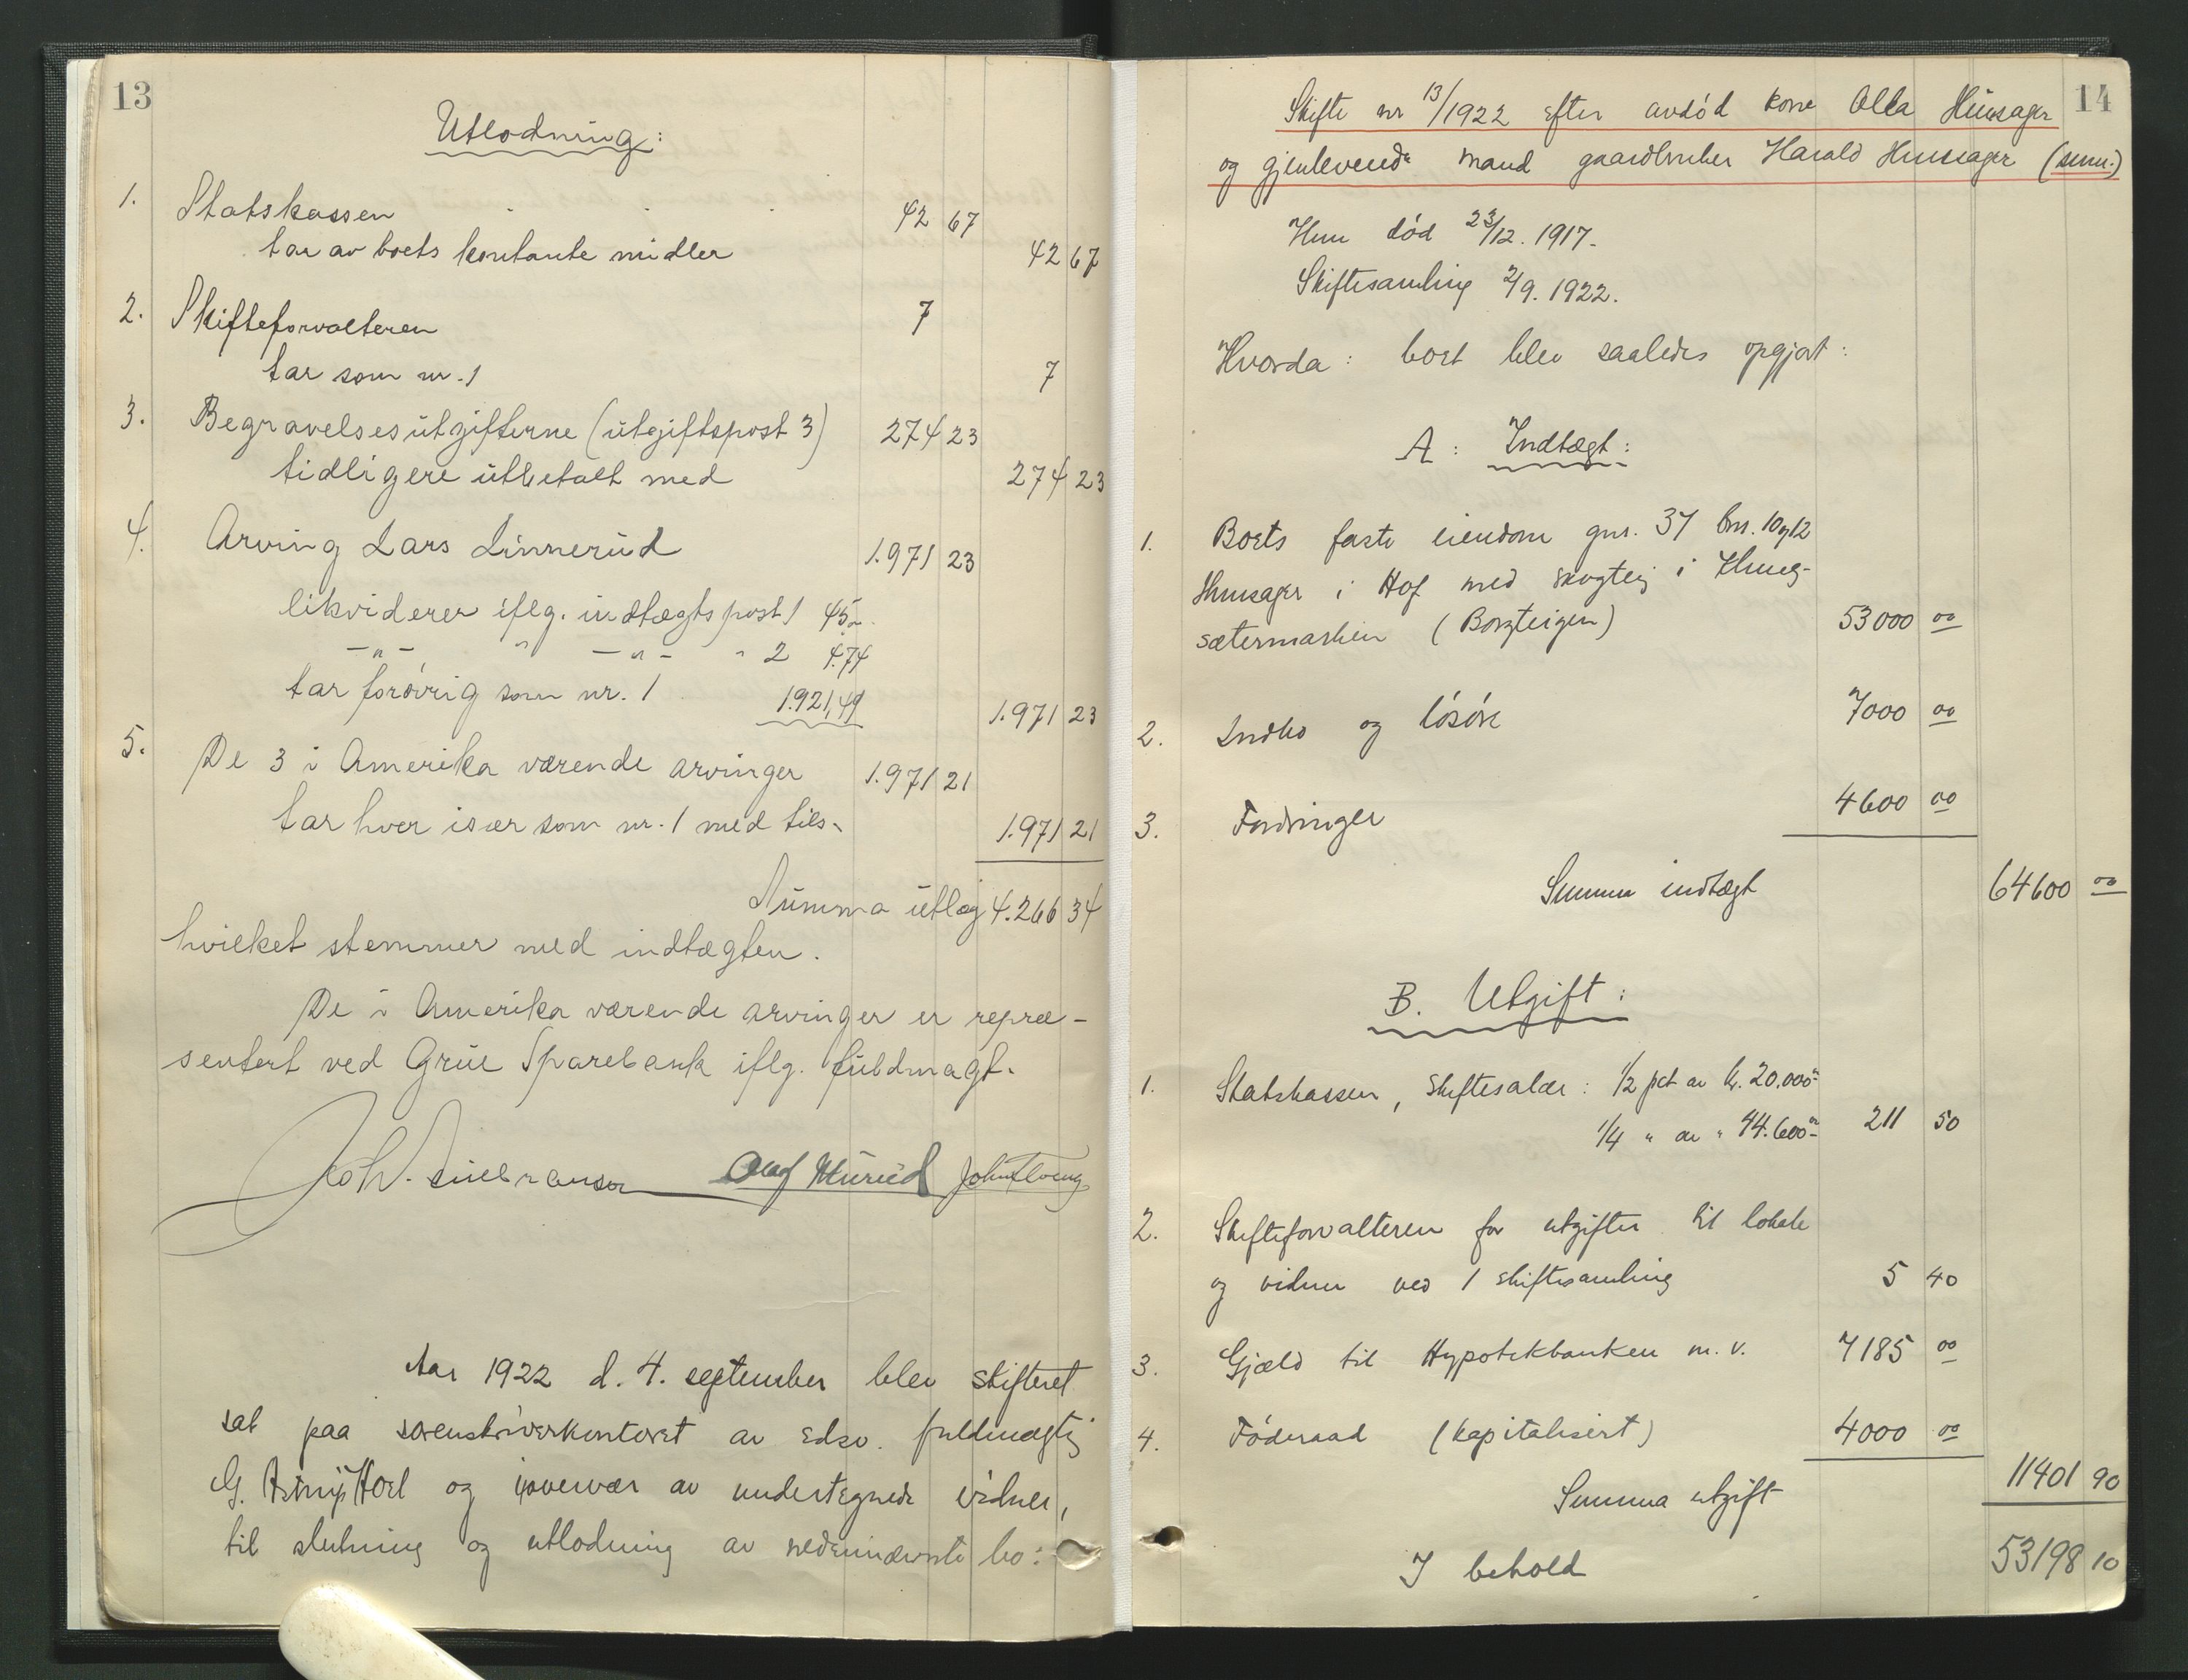 13
Utlodning:
1. Statskassen 42 67
tar av boets kontante midler 42 67
2. Skifteforvalteren 7
tar som nr. 1 7
3. Begravelsesutgifterne (utgiftspost 3) 274 23
tidligere utbetalt med 274 23
4. Arving Lars Linnerud 1.971 23
likviderer iflg. indtægtspost 1 45,-
-"- " -"- " 2 4.74
tar forøvrig som nr. 1 1.921,49 1.971 23
5. De 3 i Amerika værende arvinger 1.971 21
tar hver især som nr. 1 med tils. 1.971 21
Summa utlæg 4.266 34
hvilket stemmer med indtægten.
De i Amerika værende arvinger er repræ-
sentert ved Grue Sparebank iflg. fuldmagt.
Olaf Murud John
Aar 1922 d. 4. september blev skifteret
sat paa sorenskriverkontoret av edsv. fuldmægtig
G. Hoel og i overvær av undertegnede vidner,
til slutning og utlodning av nedennævnte bo:
14
Skifte nr 13/1922 efter avdød kone Olea Hunsager
og gjenlevende mand gaardbruker Harald Hunsager (senr.)
Hun død 23/12. 1917.
Skiftesamling 2/9. 1922.
Hvorda: boet blev saaledes opgjort:
A: Indtægt:
1. Boets faste eiendom gnr. 37 bnr. 10 og 12
Hunsager i Hof med skogteig i
sætermarken 53000 00
2. Indbo og løsøre 7000 00
3. Fordringer 4600 00
Summa indtægt 64600 00
B. Utgift:
1. Statskassen, skiftesalær: 1/2 pct av kr. 20.000.-
1/4 " av " 44.600.- 211 50
2. Skifteforvalteren for utgifter til lokale
og vidner ved 1 skiftesamling 5 40
3. Gjæld til Hypotekbanken m. v. 7185 00
4. Føderaad (kapitalisert) 4000 00
Summa utgift 11401 90
I behold 53198 10